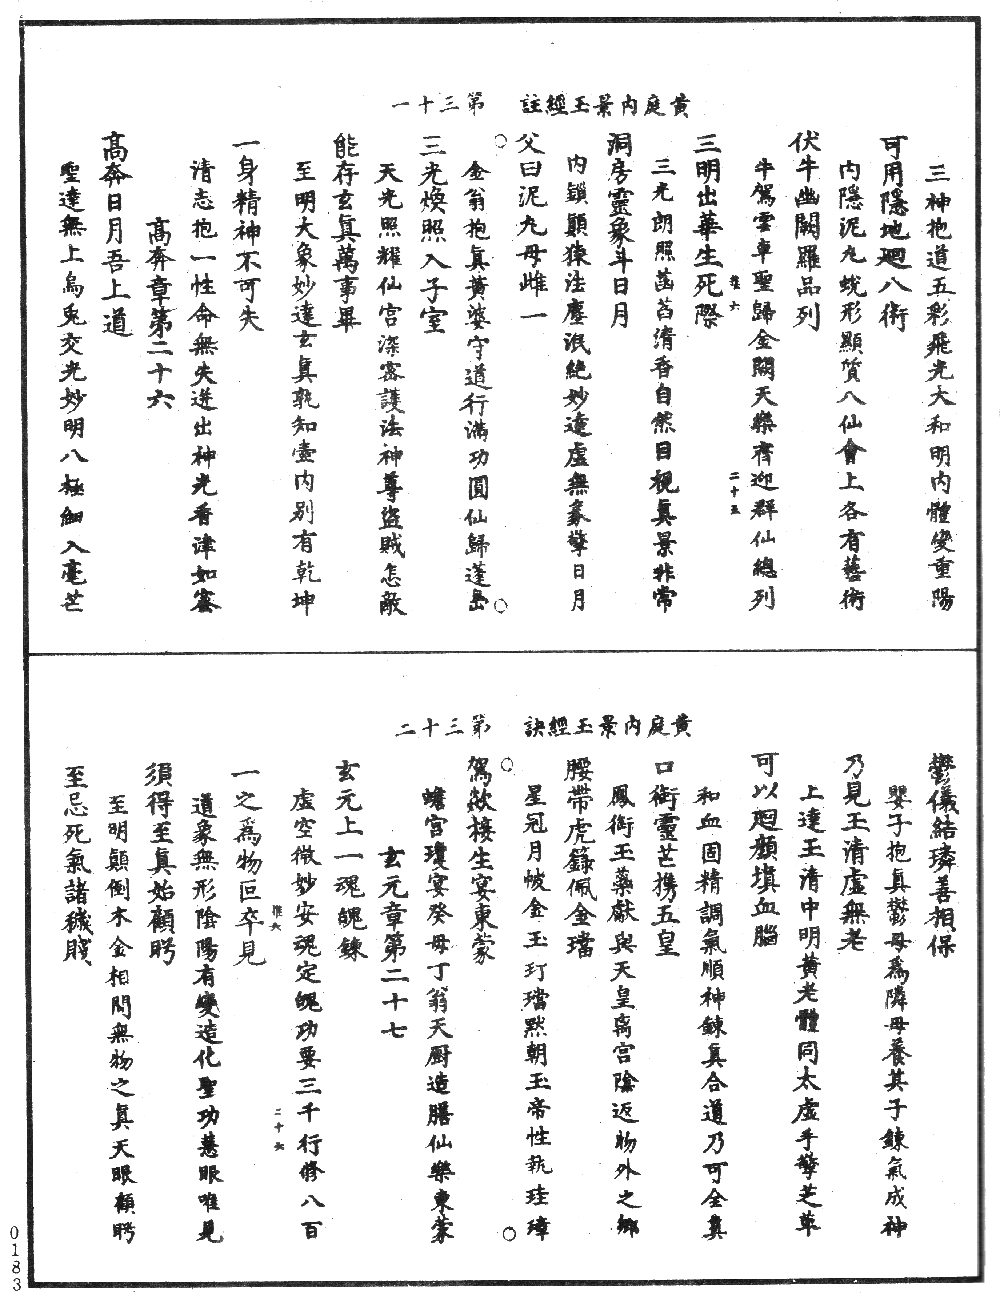 黄庭內景玉經註　第三十一
三神抱道五彩飛光大和明內體變重陽
可用隱地廻八術
內隱泥丸蛻形顯質八仙會上各有藝術
伏牛幽闕羅品列
牛駕雲車聖歸金闕天樂齊迎群仙總列
推六　二十五
三明出華生死際
三光朗照菡萏清香自然目視真景非常
洞房靈象斗日月
內鎖顛猿法塵泯絕妙達虛無豪擎日月
父曰泥丸母雌一
金翁抱真黄婆守道行滿功圓仙歸蓬島
三光煥照入子室
天光照耀仙宫深密護法神尊盗賊怎敵
能存玄真萬事畢
至明大象妙達玄真孰知壷內别有乾坤
一身精神不可失
清志抱一性命無失迸出神光香津如蜜
高奔章第二十六
高奔日月吾上道
聖達無上烏兎交光妙明八極細入毫芒
黄庭內景玉經訣　第三十二
鬱儀結璘善相保
嬰子抱真鬱母爲隣母養其子鍊氣成神
乃見玉清虛無老
上達玉清中明黄老體同太虛手擎芝草
可以廻顔填血腦
和血固精調氣順神鍊真合道乃可全真
口銜靈芒攜五皇
鳳銜玉藥獻與天皇离宫陰返物外之鄉
腰帶虎籙佩金璫
星冠月帔金玉玎璫黙朝玉帝性執珪璋
駕歘接生宴東蒙
蟾宫瓊宴癸母丁翁天厨造膳仙樂東蒙
玄元章第二十七
玄元上一魂魄鍊
虛空微妙安魂定魄功要三千行修八百
推六　二十六
一之爲物叵卒見
道象無形陰陽有變造化聖功慧眼唯見
須得至真始顧眄
至明顛倒木金相間無物之真天眼顧眄
至忌死氣諸穢賤
0183